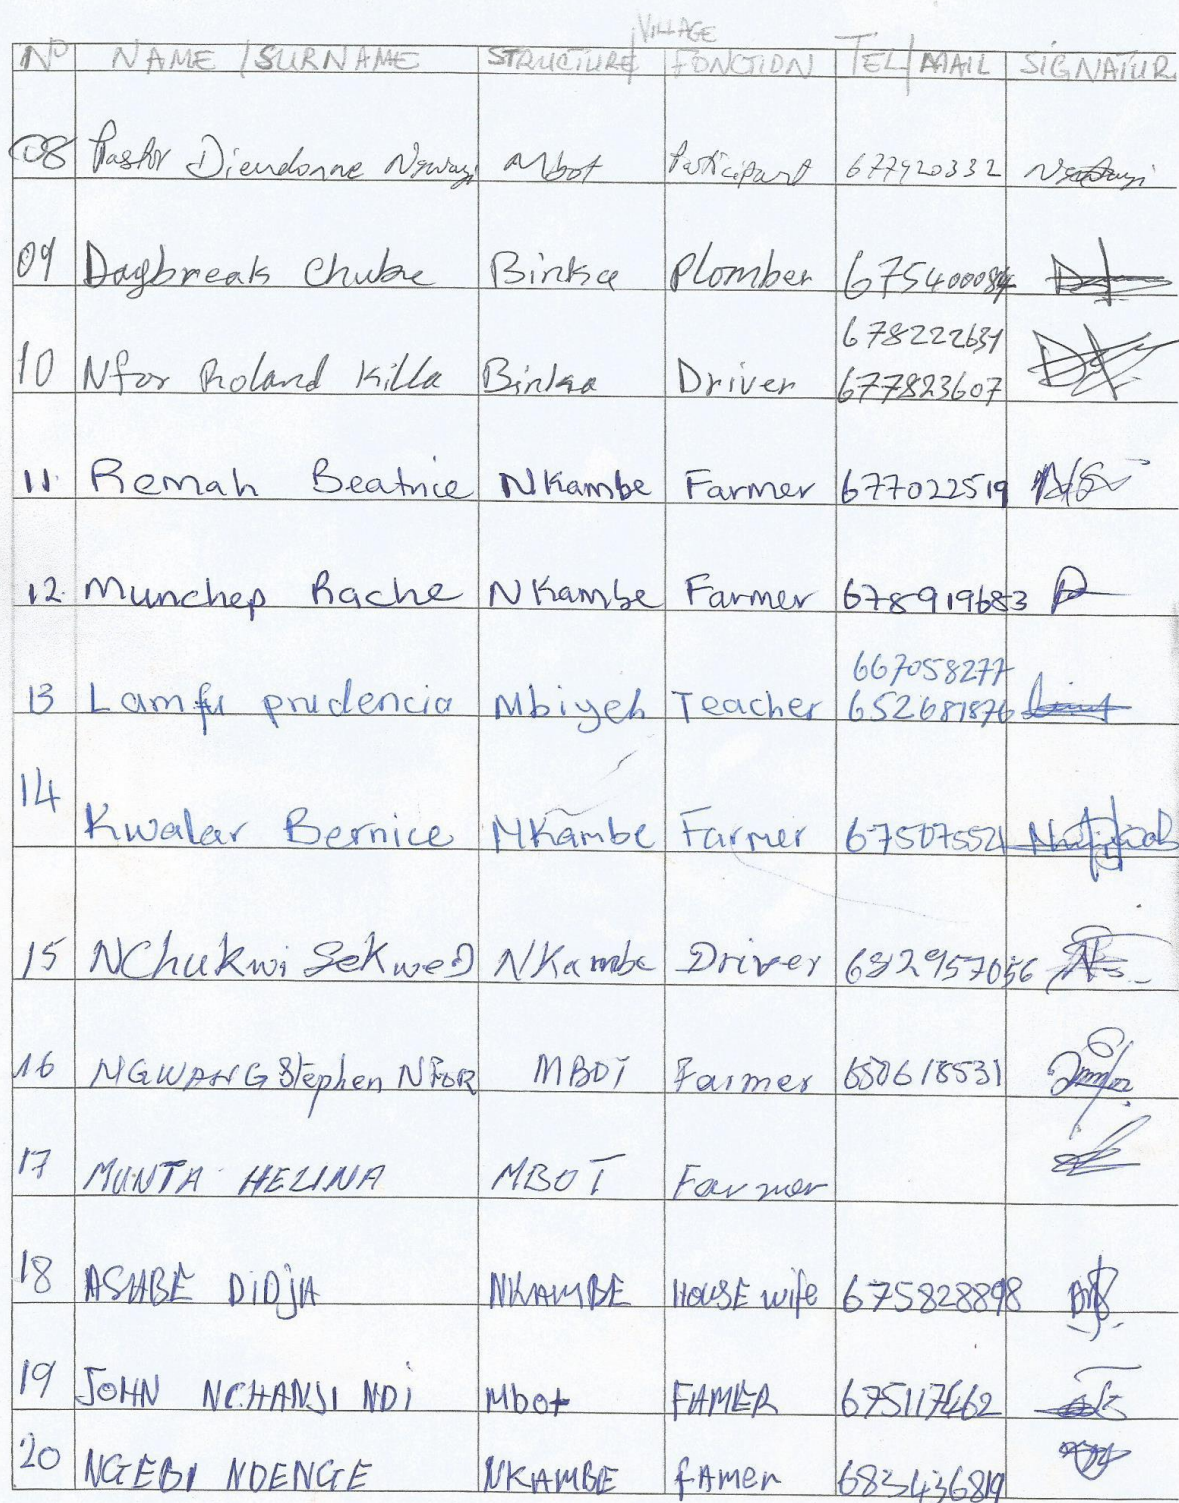 VILLAGE
No NAME / SURNAME STRUCTURE/ FONCTION TEL/MAIL SIGNATUR
08 Pastor Dieudonne Mbot Participant 677920332
09 Daybreak Chubee Binka Plomber 675400084
678222631
10 Nfor Roland Killa Binka Driver 677823607
11. Remah Beatrice NKambe Farmer 677022519
12. Munchep Rache NKambe Farmer 678919683
667058277
13 Lamfu prudencia Mbiyeh Teacher 652681876
14
Kwalar Bernice NKambe Farmer 675075521
15 NChukwi SeKweD NKambe Driver 682957056
16 NGWANG Stephen NFOR MBOT Farmer 650618531
17 MUNTA HELINA MBOT Farmer
18 ASHBE DiDJA NKAMBE HOUSE wife 675828898
19 JOHN NCHANJI NDi Mbot FAMER 675117462
20 NGEBI NDENGE NKAMBE fAmer 683436819